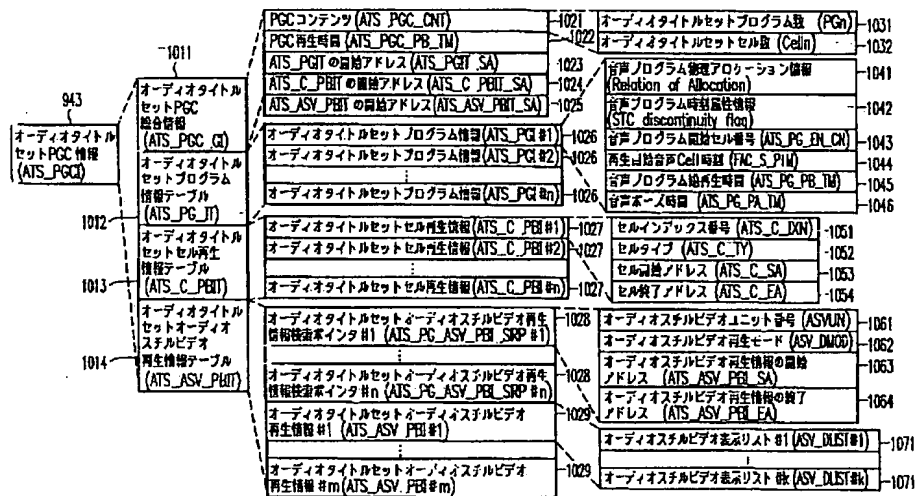 943
オーディオタイトル
セットPGC情報
(ATS_PGCI)
1011
オーディオタイトル
セットPGC
総合情報
(ATS_PGC_GI)
オーディオタイトル
セットプログラム
情報テーブル
(ATS_PG_IT)
1012
オーディオタイトル
セットセル再生
情報テーブル
(ATS_C_PBIT)
1013
オーディオタイトル
セットオーディオ
スチルビデオ
再生情報テーブル
(ATS_ASV_PBIT)
1014
PGCコンテンツ (ATS_PGC_CNT)
1021
PGC再生時間 (ATS_PGC_PB_TM)
1022
ATS_PGITの開始アドレス (ATS_PGIT_SA)
1023
ATS_C_PBITの開始アドレス (ATS_C_PBIT_SA)
1024
ATS_ASV_PBITの開始アドレス (ATS_ASV_PBIT_SA)
1025
オーディオタイトルセットプログラム情報 (ATS_PGI #1)
1026
オーディオタイトルセットプログラム情報 (ATS_PGI #2)
1026
オーディオタイトルセットプログラム情報 (ATS_PGI #n)
1026
オーディオタイトルセットセル再生情報 (ATS_C_PBI #1)
1027
オーディオタイトルセットセル再生情報 (ATS_C_PBI #2)
1027
オーディオタイトルセットセル再生情報 (ATS_C_PBI #n)
1027
オーディオタイトルセットオーディオスチルビデオ再生
情報検索ポインタ #1 (ATS_PG_ASV_PBI_SRP #1)
1028
オーディオタイトルセットオーディオスチルビデオ再生
情報検索ポインタ #n (ATS_PG_ASV_PBI_SRP #n)
1028
オーディオタイトルセットオーディオスチルビデオ
再生情報 #1 (ATS_ASV_PBI #1)
1029
オーディオタイトルセットオーディオスチルビデオ
再生情報 #m (ATS_ASV_PBI #m)
1029
オーディオタイトルセットプログラム数 (PGn)
1031
オーディオタイトルセットセル数 (Celln)
1032
音声プログラム物理アロケーション情報
(Relation of Allocation)
1041
音声プログラム時刻属性情報
(STC discontinuity flag)
1042
音声プログラム開始セル番号 (ATS_PG_EN_CN)
1043
再生開始音声Cell時刻 (FAC_S_PTM)
1044
音声プログラム総再生時間 (ATS_PG_PB_TM)
1045
音声ポーズ時間 (ATS_PG_PA_TM)
1046
セルインデックス番号 (ATS_C_IXN)
1051
セルタイプ (ATS_C_TY)
1052
セル開始アドレス (ATS_C_SA)
1053
セル終了アドレス (ATS_C_EA)
1054
オーディオスチルビデオユニット番号 (ASVUN)
1061
オーディオスチルビデオ再生モード (ASV_DMOD)
1062
オーディオスチルビデオ再生情報の開始
アドレス (ATS_ASV_PBI_SA)
1063
オーディオスチルビデオ再生情報の終了
アドレス (ATS_ASV_PBI_EA)
1064
オーディオスチルビデオ表示リスト #1 (ASV_DLIST #1)
1071
オーディオスチルビデオ表示リスト #k (ASV_DLIST #k)
1071